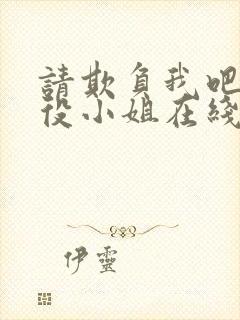 請欺負我吧
役小姐在綫
伊靈